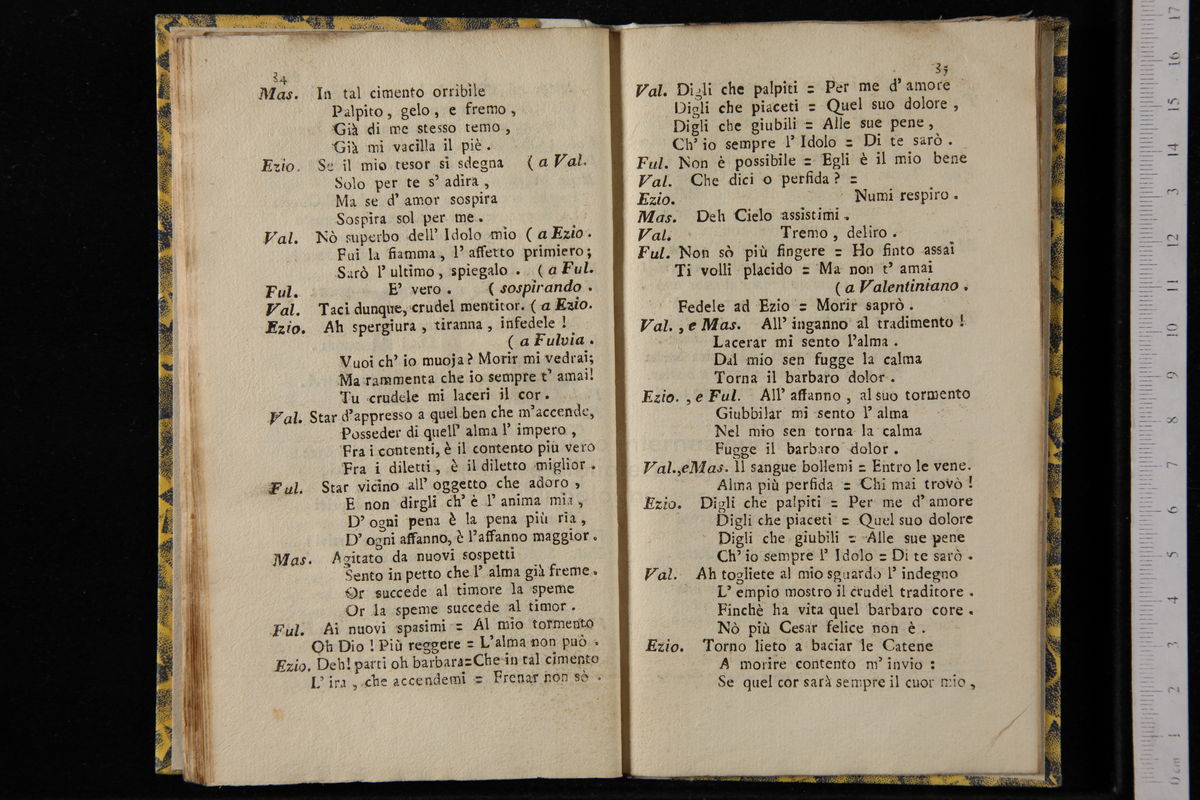 34
Mas. In tal cimento orribile
Palpito, gelo, e fremo,
Già di me stesso temo,
Già mi vacilla il piè.
Ezio. Se il mio tesor si sdegna ( a Val.
Solo per te s' adira,
Ma se d' amor sospira
Sospira sol per me.
Val. Nò superbo dell' Idolo mio ( a Ezio.
Fui la fiamma, l' affetto primiero;
Sarò l' ultimo, spiegalo. ( a Ful.
Ful. E' vero. ( sospirando.
Val. Taci dunque, crudel mentitor. ( a Ezio.
Ezio. Ah spergiura, tiranna, infedele!
( a Fulvia.
Vuoi ch' io muoja? Morir mi vedrai;
Ma rammenta che io sempre t' amai!
Tu crudele mi laceri il cor.
Val. Star d'appresso a quel ben che m'accende,
Posseder di quell' alma l' impero,
Fra i contenti, è il contento più vero
Fra i diletti, è il diletto miglior.
Ful. Star vicino all' oggetto che adoro,
E non dirgli ch' è l' anima mia,
D' ogni pena è la pena più ria,
D' ogni affanno, è l'affanno maggior.
Mas. Agitato da nuovi sospetti
Sento in petto che l' alma già freme.
Or succede al timore la speme
Or la speme succede al timor.
Ful. Ai nuovi spasimi = Al mio tormento
Oh Dio! Più reggere = L'alma non può.
Ezio. Deh! parti oh barbara=Che in tal cimento
L' ira, che accendemi = Frenar non sò.
35
Val. Digli che palpiti = Per me d' amore
Digli che piaceti = Quel suo dolore,
Digli che giubili = Alle sue pene,
Ch' io sempre l' Idolo = Di te sarò.
Ful. Non è possibile = Egli è il mio bene
Val. Che dici o perfida? =
Ezio. Numi respiro.
Mas. Deh Cielo assistimi.
Val. Tremo, deliro.
Ful. Non sò più fingere = Ho finto assai
Ti volli placido = Ma non t' amai
( a Valentiniano.
Fedele ad Ezio = Morir saprò.
Val., e Mas. All' inganno al tradimento!
Lacerar mi sento l'alma.
Dal mio sen fugge la calma
Torna il barbaro dolor.
Ezio., e Ful. All' affanno, al suo tormento
Giubbilar mi sento l' alma
Nel mio sen torna la calma
Fugge il barbaro dolor.
Val.,eMas. Il sangue bollemi = Entro le vene.
Alma più perfida = Chi mai trovò!
Ezio. Digli che palpiti = Per me d' amore
Digli che piaceti = Quel suo dolore
Digli che giubili = Alle sue pene
Ch' io sempre l' Idolo = Di te sarò.
Val. Ah togliete al mio sguardo l' indegno
L' empio mostro il crudel traditore.
Finchè ha vita quel barbaro core.
Nò più Cesar felice non è.
Ezio. Torno lieto a baciar le Catene
A morire contento m' invio:
Se quel cor sarà sempre il cuor mio,
0 cm 1 2 3 4 5 6 7 8 9 10 11 12 13 14 15 16 17